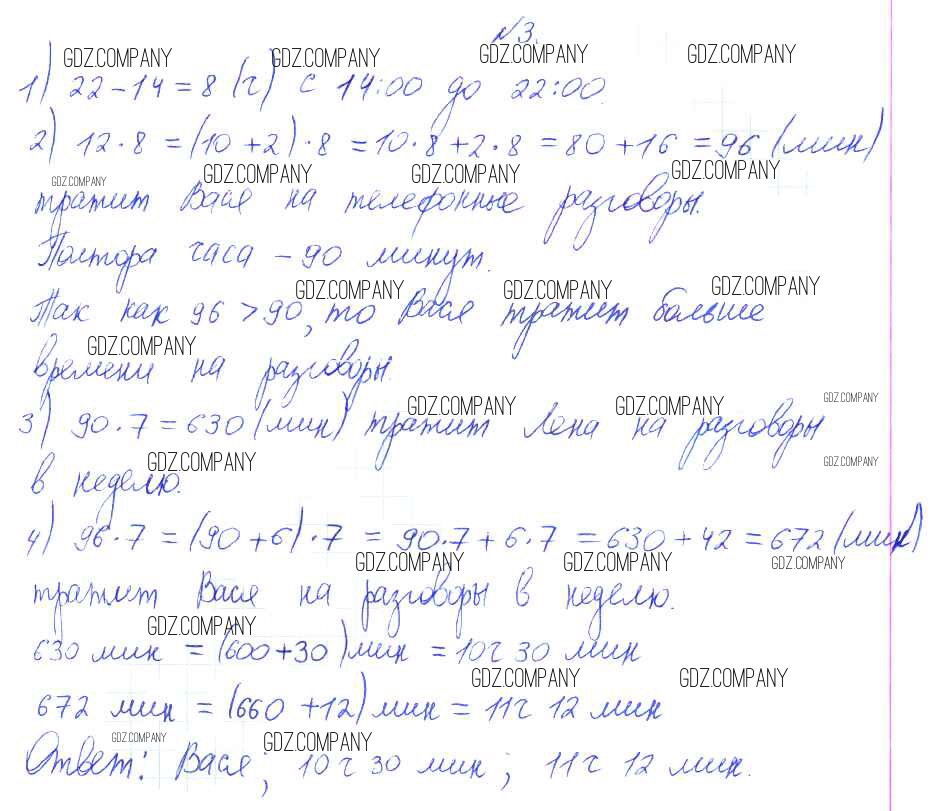 №3.
GDZ.COMPANY GDZ.COMPANY GDZ.COMPANY GDZ.COMPANY
1) 22-14=8 (ч) с 14:00 до 22:00.
2) 12·8=(10+2)·8=10·8+2·8=80+16=96 (мин)
GDZ.COMPANY GDZ.COMPANY GDZ.COMPANY GDZ.COMPANY
тратит Вася на телефонные разговоры.
Полтора часа - 90 минут.
GDZ.COMPANY GDZ.COMPANY GDZ.COMPANY
Так как 96 > 90, то Вася тратит больше
GDZ.COMPANY
времени на разговоры.
GDZ.COMPANY GDZ.COMPANY GDZ.COMPANY
3) 90·7=630 (мин) тратит Лена на разговоры
GDZ.COMPANY GDZ.COMPANY
в неделю.
4) 96·7=(90+6)·7=90·7+6·7=630+42=672 (мин)
GDZ.COMPANY GDZ.COMPANY GDZ.COMPANY
тратит Вася на разговоры в неделю.
GDZ.COMPANY
630 мин = (600+30) мин = 10ч 30 мин
GDZ.COMPANY GDZ.COMPANY
672 мин = (660+12) мин = 11ч 12 мин
GDZ.COMPANY GDZ.COMPANY
Ответ: Вася; 10ч 30 мин; 11ч 12 мин.